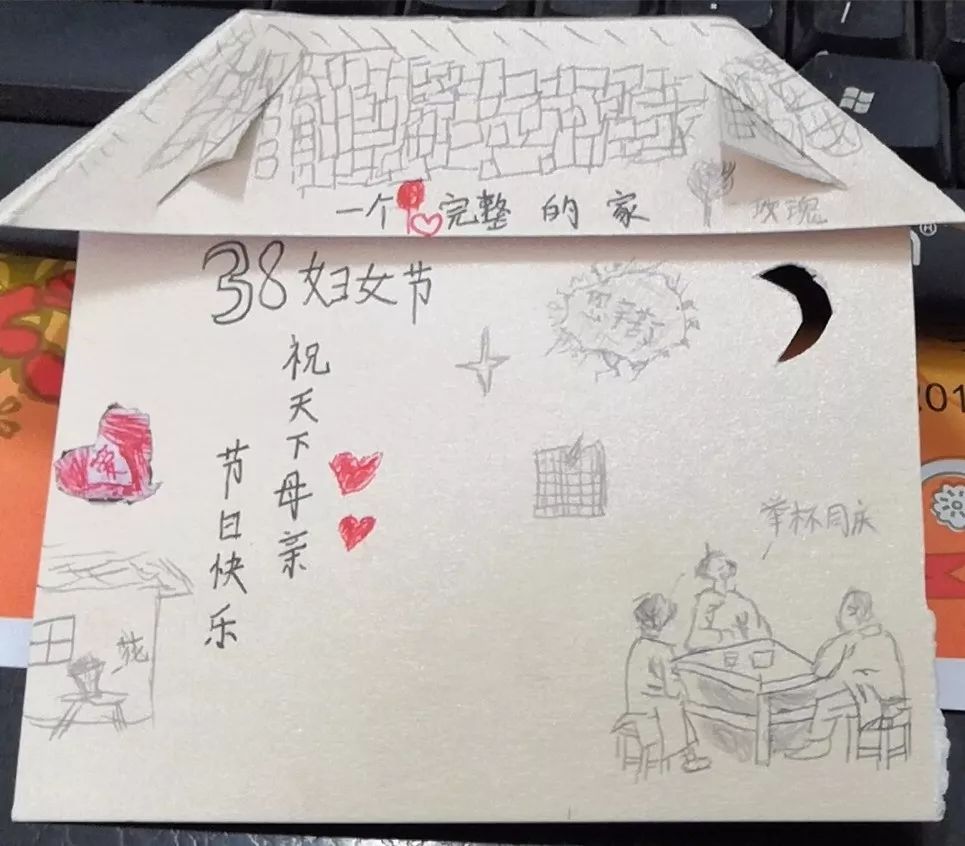 一个完整的家
玫瑰
38妇女节
祝天下母亲
节日快乐
举杯同庆
花
201